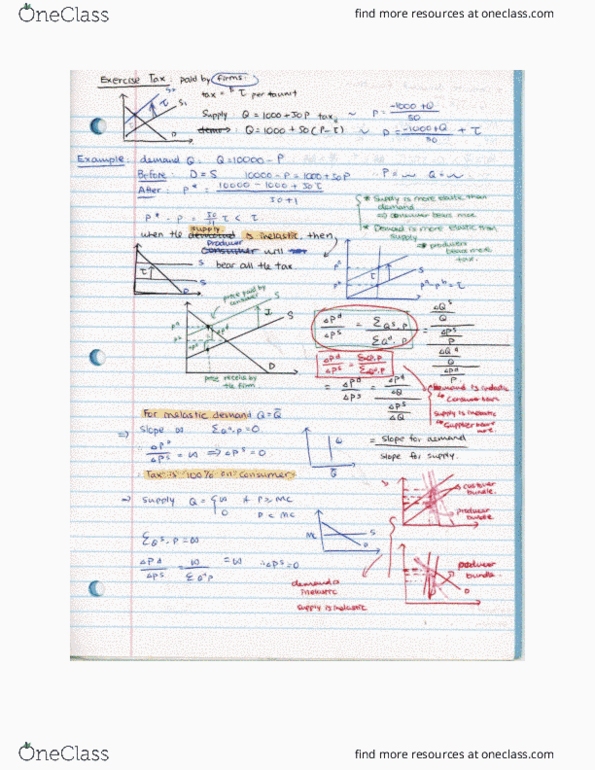 OneClass
find more resources at oneclass.com
Exercise Tax: paid by firms.
tax = $ τ per taunit
Supply Q = 1000 + 50P
P = -1000+Q / 50
Q = 1000 + 50(P-τ) ~ P = -1000+Q / 50 + τ
Example: demand Q: Q=10000 - P
Before: D = S 10000 - P = 1000 + 50P
After: P* = 10000 - 1000 + 50τ / 50+1
* Supply is more elastic than demand
⇒ consumer bears more
* Demand is more elastic than supply
⇒ producers bears more tax.
when the supply is inelastic, then
Producer will
bear all the tax
price paid by consumer
price receive by the firm
ΔPd / ΔPs = ΣQs,P / ΣQd,P
demand is inelastic
Consumer bears
supply is inelastic
Supplier bears more.
For inelastic demand Q = Q̄
⇒ Slope ∞ ΣQd,P = 0
ΔPd / ΔPs = ∞ ⇒ ΔPs = 0
= slope for demand / slope for supply.
Tax is 100% on consumer
⇒ Supply Q = {∞ if P ≥ MC
0 P < MC
ΣQs,P = ∞
ΔPd / ΔPs = ∞ / ΣQd,P = ∞ ∴ ΔPs = 0
MC
S
D
costumer bundle.
producer bundle.
producer bundle.
demand is inelastic
supply is inelastic
OneClass
find more resources at oneclass.com